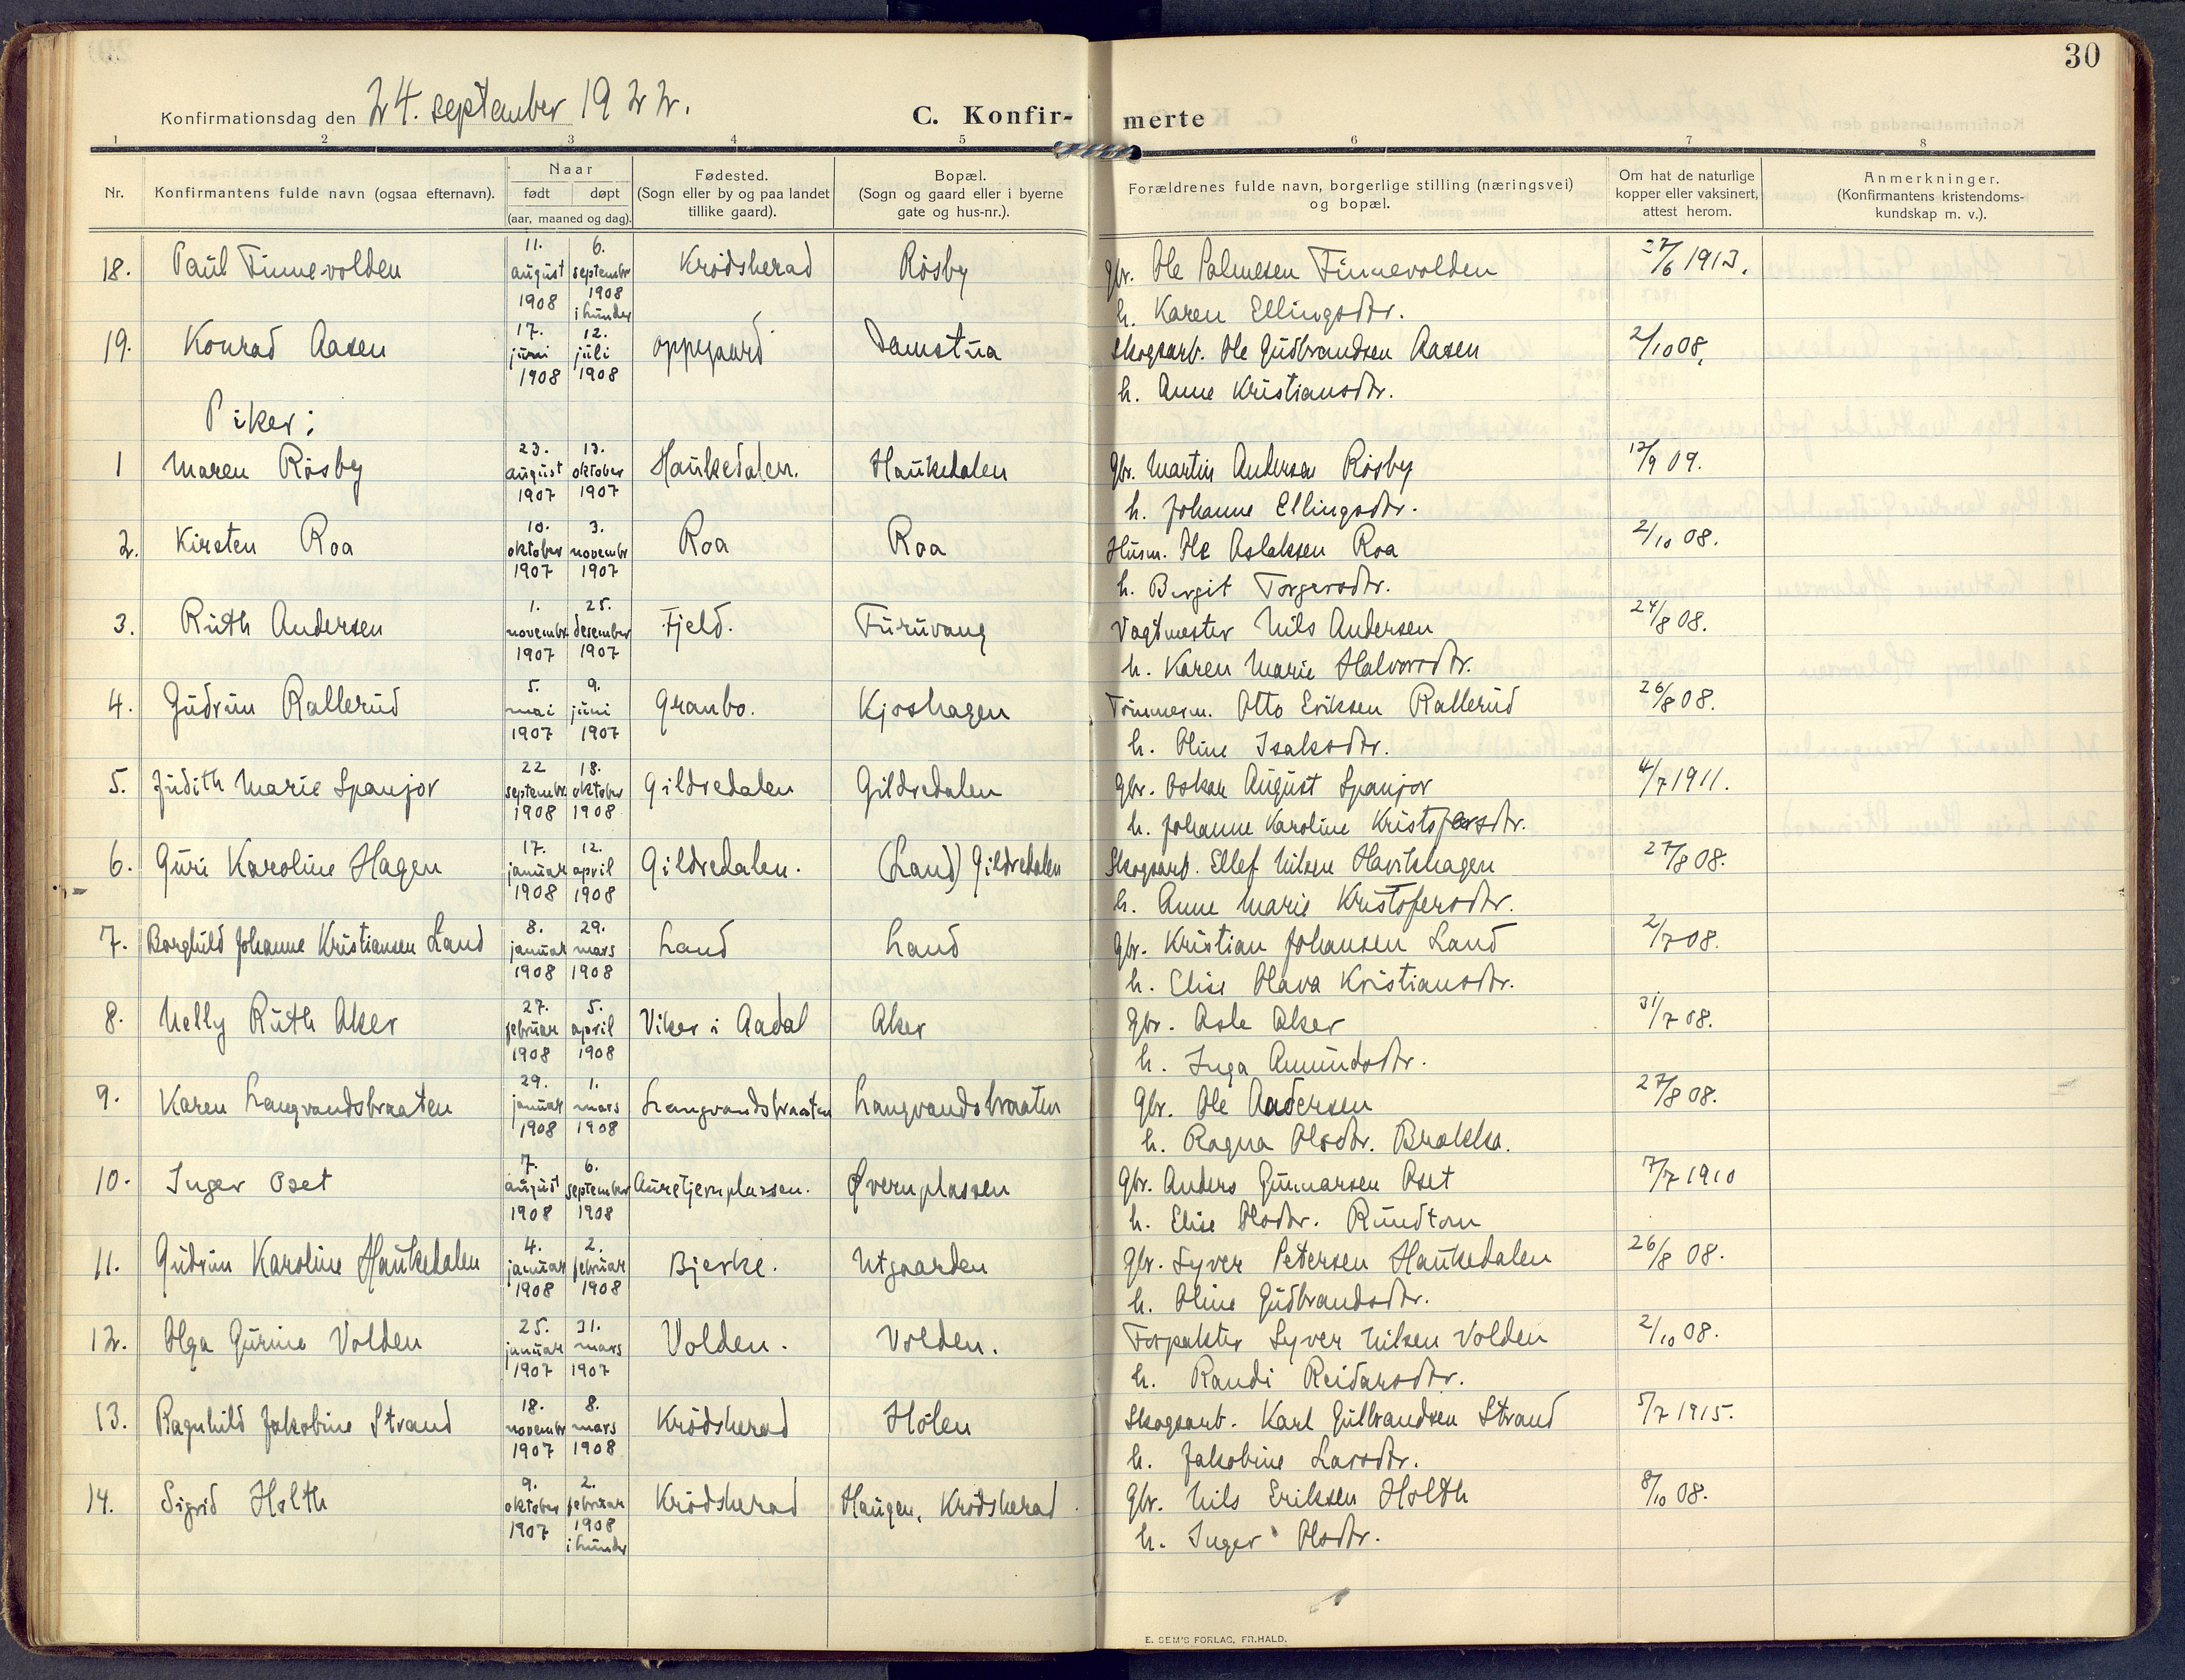 30
Konfirmationsdag den 24. september 1922.
C. Konfir-
merte
1 2 3 4 5 6 7 8
Nr. Konfirmantens fulde navn (ogsaa efternavn). Naar født døpt (aar, maaned og dag). Fødested. (Sogn eller by og paa landet tillike gaard). Bopæl. (Sogn og gaard eller i byerne gate og hus-nr.). Forældrenes fulde navn, borgerlige stilling (næringsvei) og bopæl. Om hat de naturlige kopper eller vaksinert, attest herom. Anmerkninger. (Konfirmantens kristendoms-kundskap m. v.).
18. Paul Finnevolden 11. august 1908 6. septembr 1908 i Lunder Krødsherad Røsby gbr. Ole Palmesen Finnevolden 27/6 1913.
h. Karen Ellingsdtr.
19. Konrad Aasen 17. juni 1908 12. juli 1908 oppegaard Damstua Skogsarb. Ole Gudbrandsen Aasen 2/10 08.
h. Anne Kristiansdtr.
Piker:
1 Maren Røsby 23. august 1907 13. oktober 1907 Haukedalen. Haukedalen Gbr. Martin Andersen Røsby 13/9 09.
h. Johanne Ellingsdtr.
2. Kirsten Roa 10. oktober 1907 3. novembr 1907 Roa Roa Husm. Ole Aslaksen Roa 2/10 08.
h. Birgit Torgersdtr.
3. Ruth Andersen 1. novembr 1907 25. desember 1907 Fjeld. Furuvang Vagtmester Nils Andersen 24/8 08.
h. Karen Marie Halvorsdtr.
4. Gudrun Rallerud 5. mai 1907 9. juni 1907 Granbo. Kjoshagen Tømmerm. Otto Eriksen Rallerud 26/8 08.
h. Oline Isaksdtr.
5. Judith Marie Spanjor 22 septembr 1908 18. oktober 1908 Gildredalen Gildredalen Gbr. Oskar August Spanjor 4/7 1911.
h. Johanne Karoline Kristofersdtr.
6. Guri Karoline Hagen 17. januar 1908 12. april 1908 Gildredalen. (Land) Gildredalen Skogsarb. Ellef Nilsen Havikhagen 27/8 08.
h. Anne Marie Kristofersdtr.
7. Borghild Johanne Kristiansen Land 8. januar 1908 29. mars 1908 Land Land Gbr. Kristian Johansen Land 2/7 08.
h. Elise Olava Kristiansdtr.
8. Nelly Ruth Aker 27. februar 1908 5. april 1908 Viker i Aadal Aker Gbr. Asle Aker 31/7 08.
h. Inga Amundsdtr.
9. Karen Langvandsbraaten 29. januar 1908 1. mars 1908 Langvandsbraaten Langvandsbraaten Gbr. Ole Andersen 27/8 08.
h. Ragna Olsdtr. Brækka.
10. Inger Oset 7. august 1908 6. september 1908 Auretjernplassen. Øvernplassen Gbr. Anders Gunnarsen Oset 7/7 1910
h. Elise Olsdtr. Rundtom
11. Gudrun Karoline Haukedalen 4. januar 1908 2. februar 1908 Bjerke. Utgaarden Gbr. Syver Petersen Haukedalen 26/8 08.
h. Oline Gudbrandsdtr.
12. Olga Gurine Volden 25. januar 1907 31. mars 1907 Volden. Volden. Forpakter Syver Nilsen Volden 2/10 08.
h. Randi Reidarsdtr.
13. Ragnhild Jakobine Strand 18. novembr 1907 8. mars 1908 Krødsherad Holen Skogsarb. Karl Gulbrandsen Strand 5/7 1915.
h. Jakobine Larsdtr.
14. Sigrid Holth 9. oktober 1907 2. februar 1908 i Lunder Krødsherad Haugen, Krødsherad Gbr. Nils Eriksen Holth 8/10 08.
h. Inger Olsdtr.
E. SEM'S FORLAG, FR.HALD.